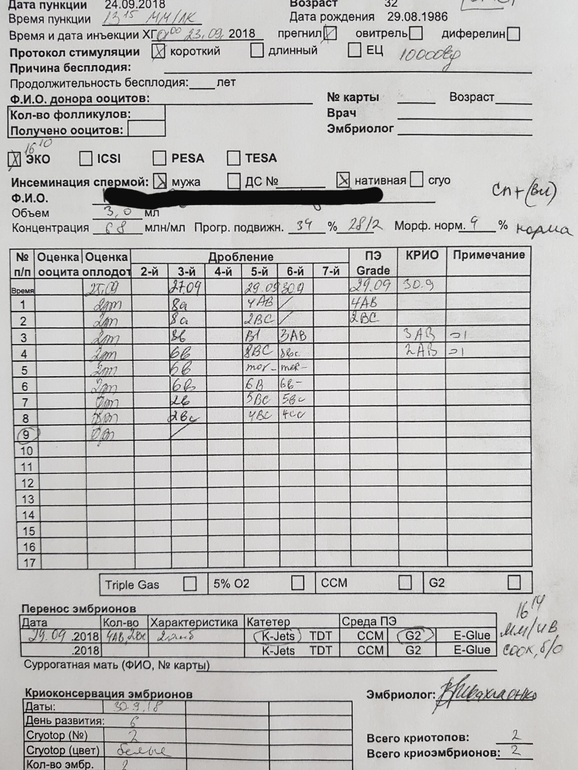 Дата пункции 24.09.2018 Возраст 32
Время пункции 13 15 ММ/ЛК Дата рождения 29.08.1986
Время и дата инъекции ХГ 0 00 23.09.2018 прегнил овитрель диферелин
Протокол стимуляции короткий длинный ЕЦ 10000ед
Причина бесплодия:
Продолжительность бесплодия: лет
Ф.И.О. донора ооцитов: № карты Возраст
Кол-во фолликулов: Врач
Получено ооцитов: Эмбриолог
16 10
ЭКО ICSI PESA TESA
Инсеминация спермой: мужа ДС № нативная сryo
Ф.И.О.
Объем 3,0 мл
Концентрация 68 млн/мл Прогр. подвижн. 34 % 28/2 Морф. норм. 4 % норма
№ п/п Оценка ооцита Оценка оплодот Дробление ПЭ Grade КРИО Примечание
2-й 3-й 4-й 5-й 6-й 7-й
Время 25.09 27.09 29.09 30.9 29.09 30.9
1 2pn 8a 4AB / 4AB
2 2pn 8a 2BC / 2BC
3 2pn 8b B1 3AB 3AB
4 2pn 6B 2AB
5 2pn 5B mor- mor-
6 2pn 6B 6B 6B-
7 0pn 2B 5BC 5Bc
8 4BC 4cc
9 0pn
10
11
12
13
14
15
16
17
Triple Gas 5% O2 CCM G2
Перенос эмбрионов
Дата Кол-во Характеристика Катетер Среда ПЭ
29.09 .2018 4AB, 2BC K-Jets TDT CCM G2 E-Glue
.2018 K-Jets TDT CCM G2 E-Glue
16 14
ММ/ИВ
Суррогатная мать (ФИО, № карты)
Криоконсервация эмбрионов Эмбриолог:
Даты: 30.9.18
День развития: 6
Cryotop (№) 2 Всего криотопов: 2
Cryotop (цвет) белые Всего криоэмбрионов: 2
Кол-во эмбр. 2